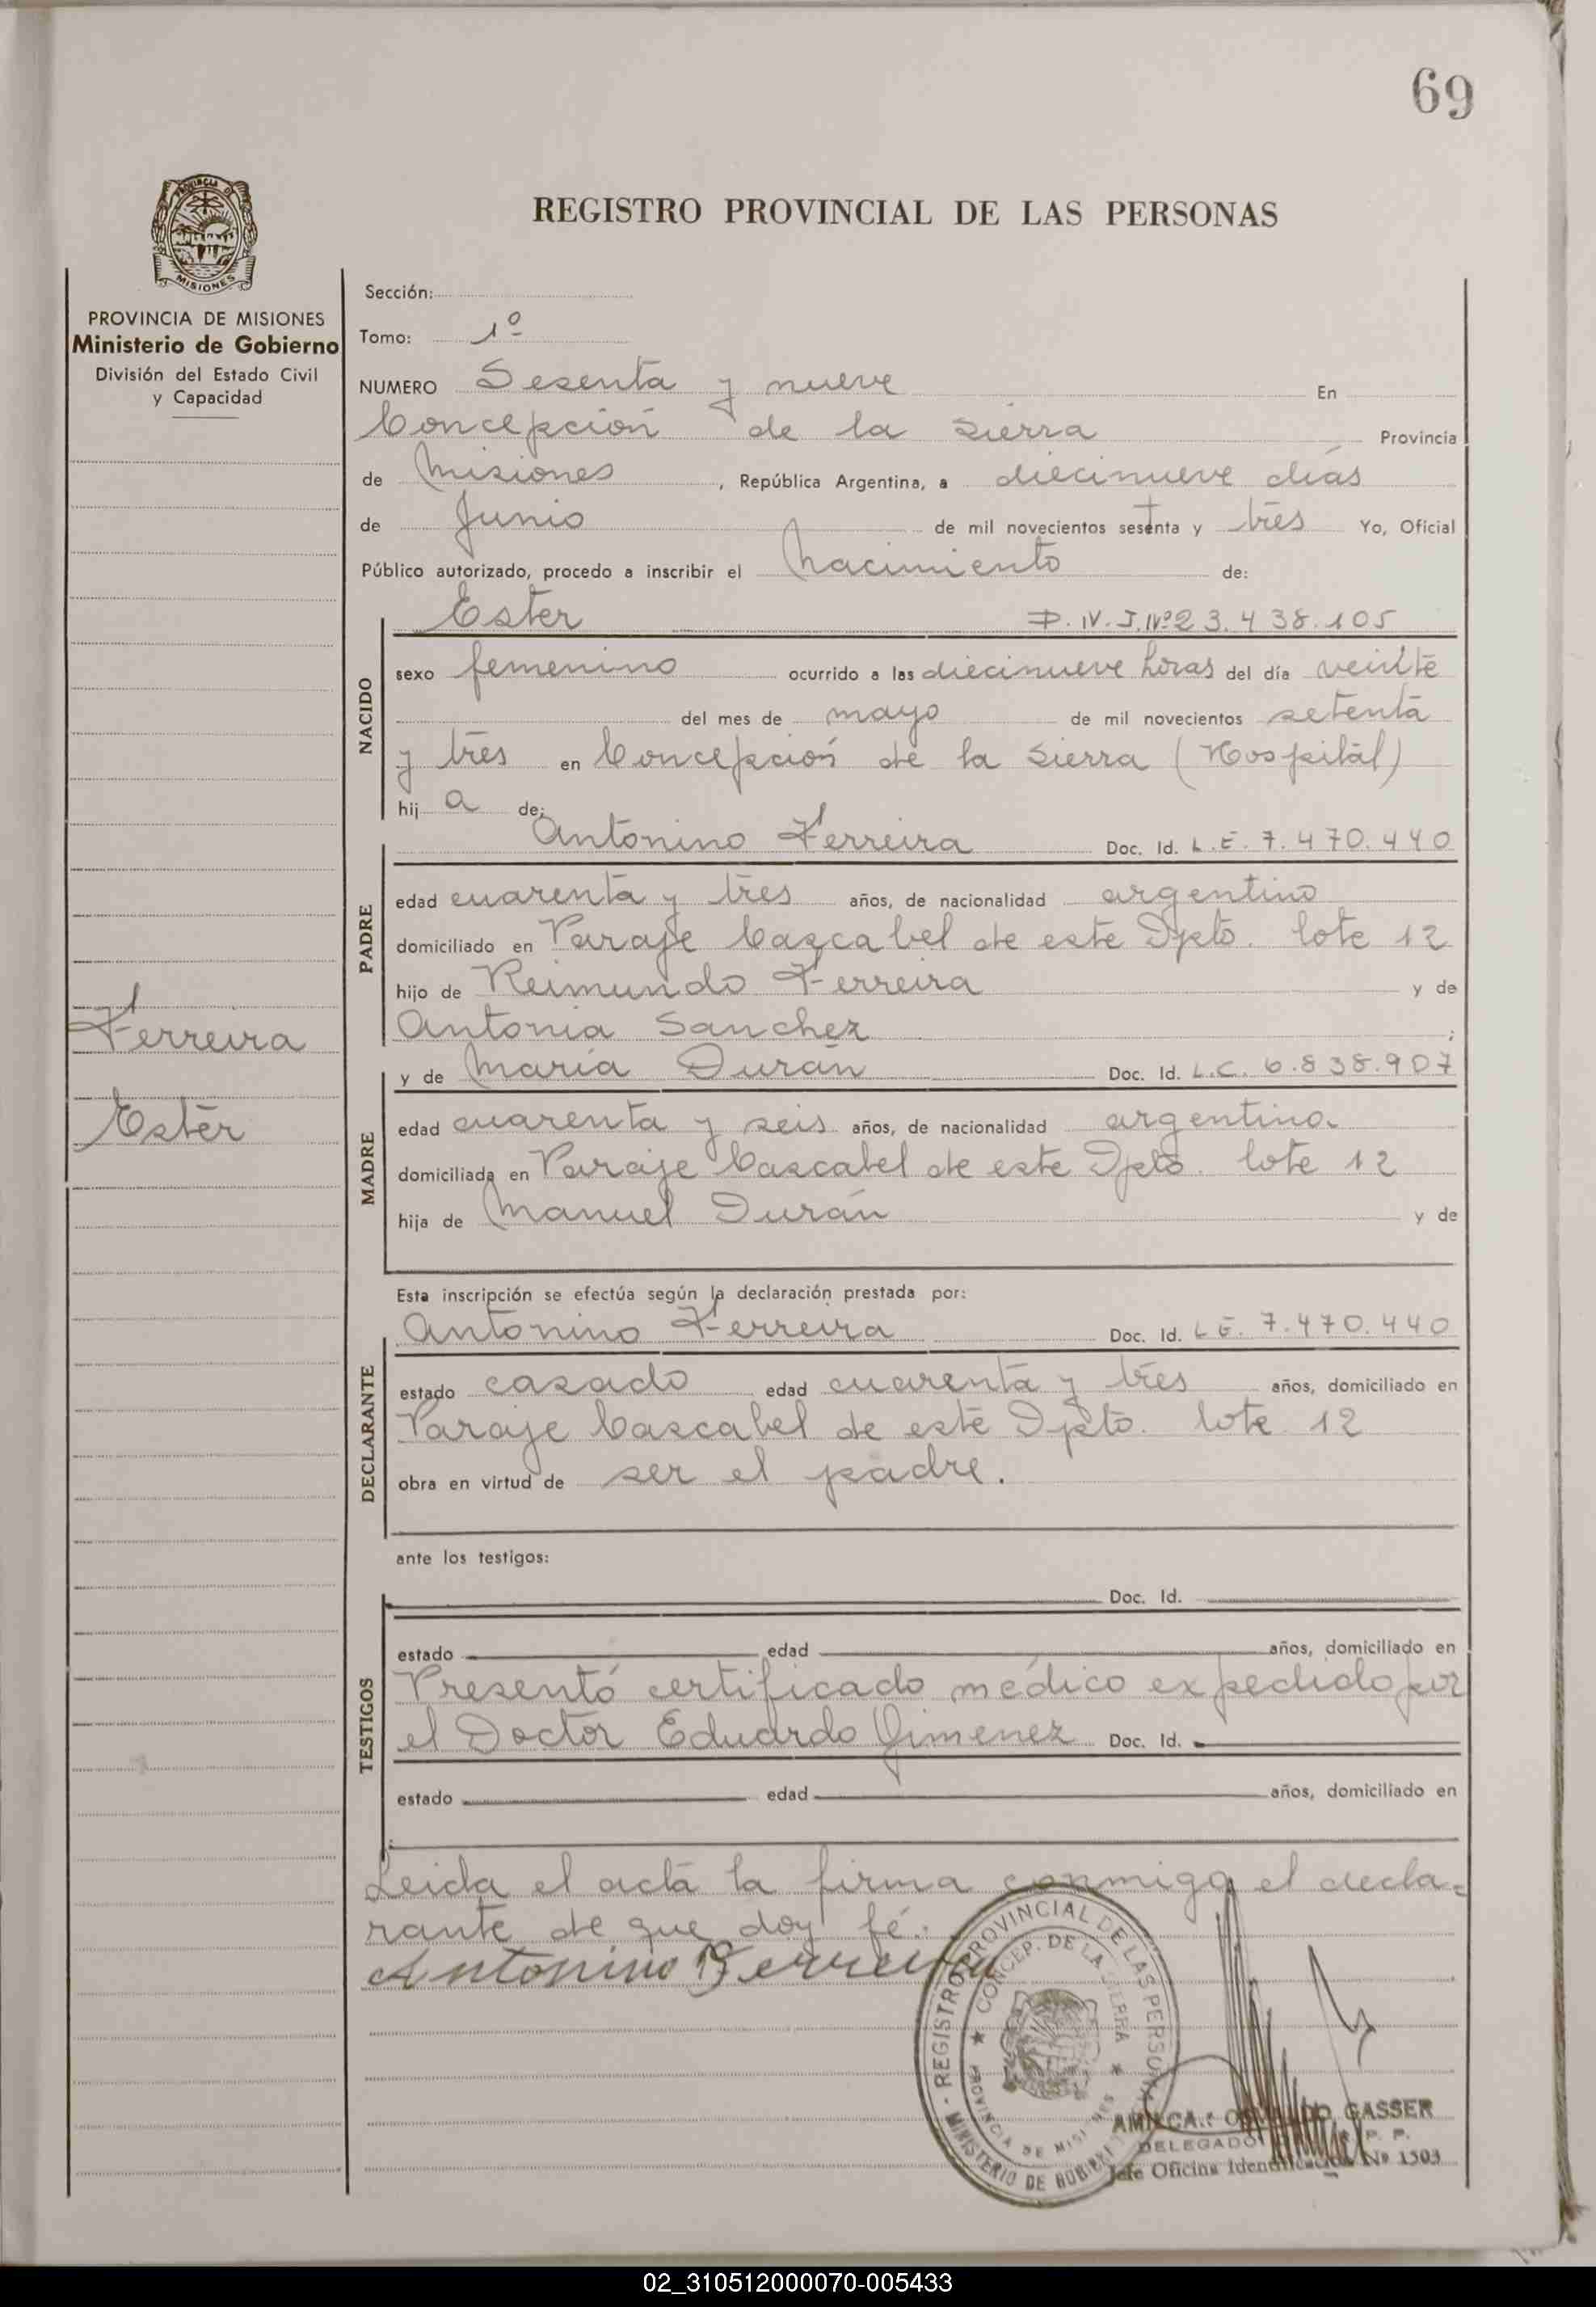 69
REGISTRO PROVINCIAL DE LAS PERSONAS
PROVINCIA DE MISIONES
Ministerio de Gobierno
División del Estado Civil
y Capacidad
Ferreira
Ester
Sección:
Tomo: 1º
NUMERO Sesenta y nueve En
Concepción de la Sierra Provincia
de Misiones, República Argentina, a diecinueve días
de Junio de mil novecientos sesenta y tres Yo, Oficial
Público autorizado, procedo a inscribir el Nacimiento de:
Ester D.N.I. Nº 23.438.105
NACIDO
sexo femenino ocurrido a las diecinueve horas del día veinte
del mes de mayo de mil novecientos setenta
y tres en Concepción de la Sierra (Hospital)
hij a de:
Antonino Ferreira Doc. Id. L.E. 7.470.440
PADRE
edad cuarenta y tres años, de nacionalidad argentino
domiciliado en Paraje Cascabel de este Dpto. lote 12
hijo de Reimundo Ferreira y de
Antonia Sanchez ;
y de María Durán Doc. Id. L.C. 6.838.907
MADRE
edad cuarenta y seis años, de nacionalidad argentina
domiciliada en Paraje Cascabel de este Dpto. lote 12
hija de Manuel Durán y de
Esta inscripción se efectúa según la declaración prestada por:
Antonino Ferreira Doc. Id. L.E. 7.470.440
DECLARANTE
estado casado edad cuarenta y tres años, domiciliado en
Paraje Cascabel de este Dpto. lote 12
obra en virtud de ser el padre.
ante los testigos:
Doc. Id.
TESTIGOS
estado edad años, domiciliado en
Presentó certificado médico expedido por
el Doctor Eduardo Gimenez Doc. Id.
estado edad años, domiciliado en
Leida el acta la firma conmigo el decla-
rante de que doy fé.
Antonino Ferreira
REGISTRO PROVINCIAL DE LAS PERSONAS
CONCEP. DE LA SIERRA
PROVINCIA DE MISIONES
MINISTERIO DE GOBIERNO
GASSER
DELEGADO
Jefe Oficina Identificación Nº 1503
02_310512000070-005433